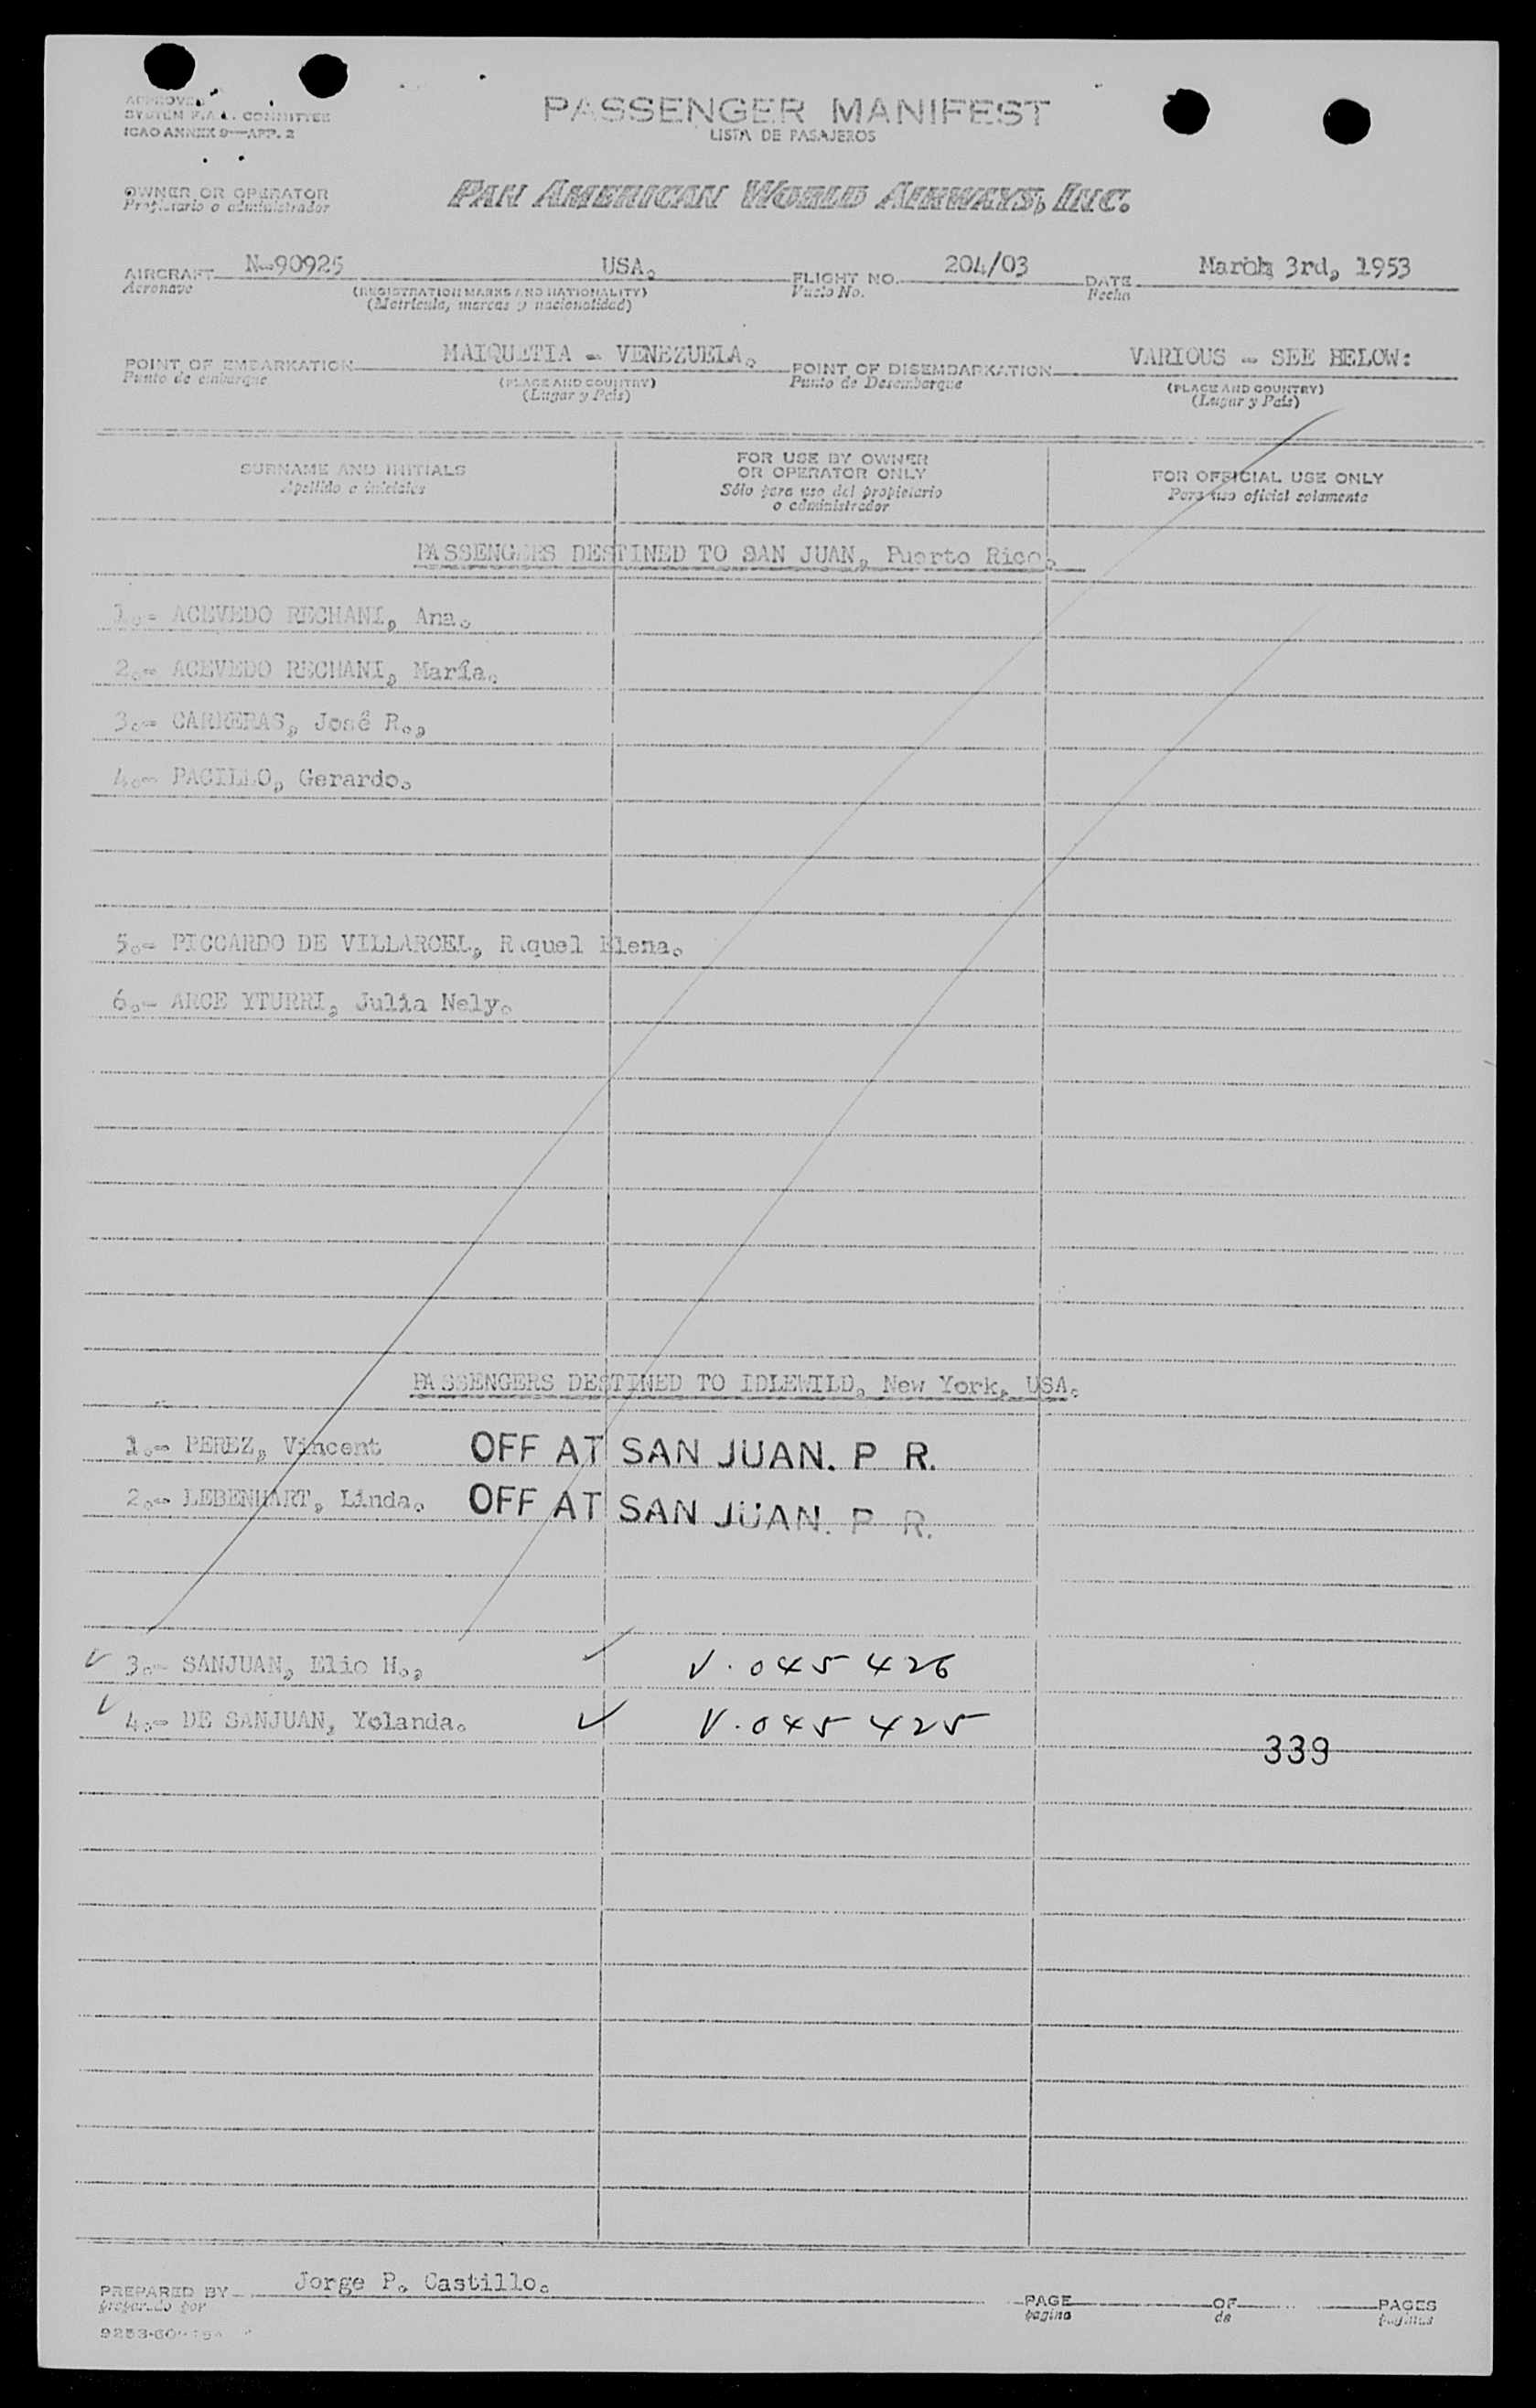 APPROVED
SYSTEM F.A.L. COMMITTEE
ICAO ANNEX 9—APP. 2
PASSENGER MANIFEST
LISTA DE PASAJEROS
OWNER OR OPERATOR
Propietario o administrador
PAN AMERICAN WORLD AIRWAYS, INC.
AIRCRAFT N-90925 USA. FLIGHT NO. 204/03 DATE March 3rd, 1953
Aeronave (REGISTRATION MARKS AND NATIONALITY) Vuelo No. Fecha
(Matrícula, marcas y nacionalidad)
POINT OF EMBARKATION MAIQUETIA - VENEZUELA. POINT OF DISEMBARKATION VARIOUS - SEE BELOW:
Punto de embarque (PLACE AND COUNTRY) Punto de Desembarque (PLACE AND COUNTRY)
(Lugar y País) (Lugar y País)
SURNAME AND INITIALS FOR USE BY OWNER OR OPERATOR ONLY FOR OFFICIAL USE ONLY
Apellido e iniciales Sólo para uso del propietario o administrador Para uso oficial solamente
PASSENGERS DESTINED TO SAN JUAN, Puerto Rico.
1.- ACEVEDO RECHANI, Ana.
2.- ACEVEDO RECHANI, María.
3.- CARRERAS, José R.,
4.- PACILLO, Gerardo.
5.- PICCARDO DE VILLARCEL, Raquel Elena.
6.- ARCE YTURRI, Julia Nely.
PASSENGERS DESTINED TO IDLEWILD, New York, USA.
1.- PEREZ, Vincent OFF AT SAN JUAN. P R.
2.- LEBENHART, Linda. OFF AT SAN JUAN. P R.
3.- SANJUAN, Elio H., V. 045 426
4.- DE SANJUAN, Yolanda. V. 045 425
339
PREPARED BY Jorge P. Castillo. PAGE OF PAGES
preparado por página de páginas